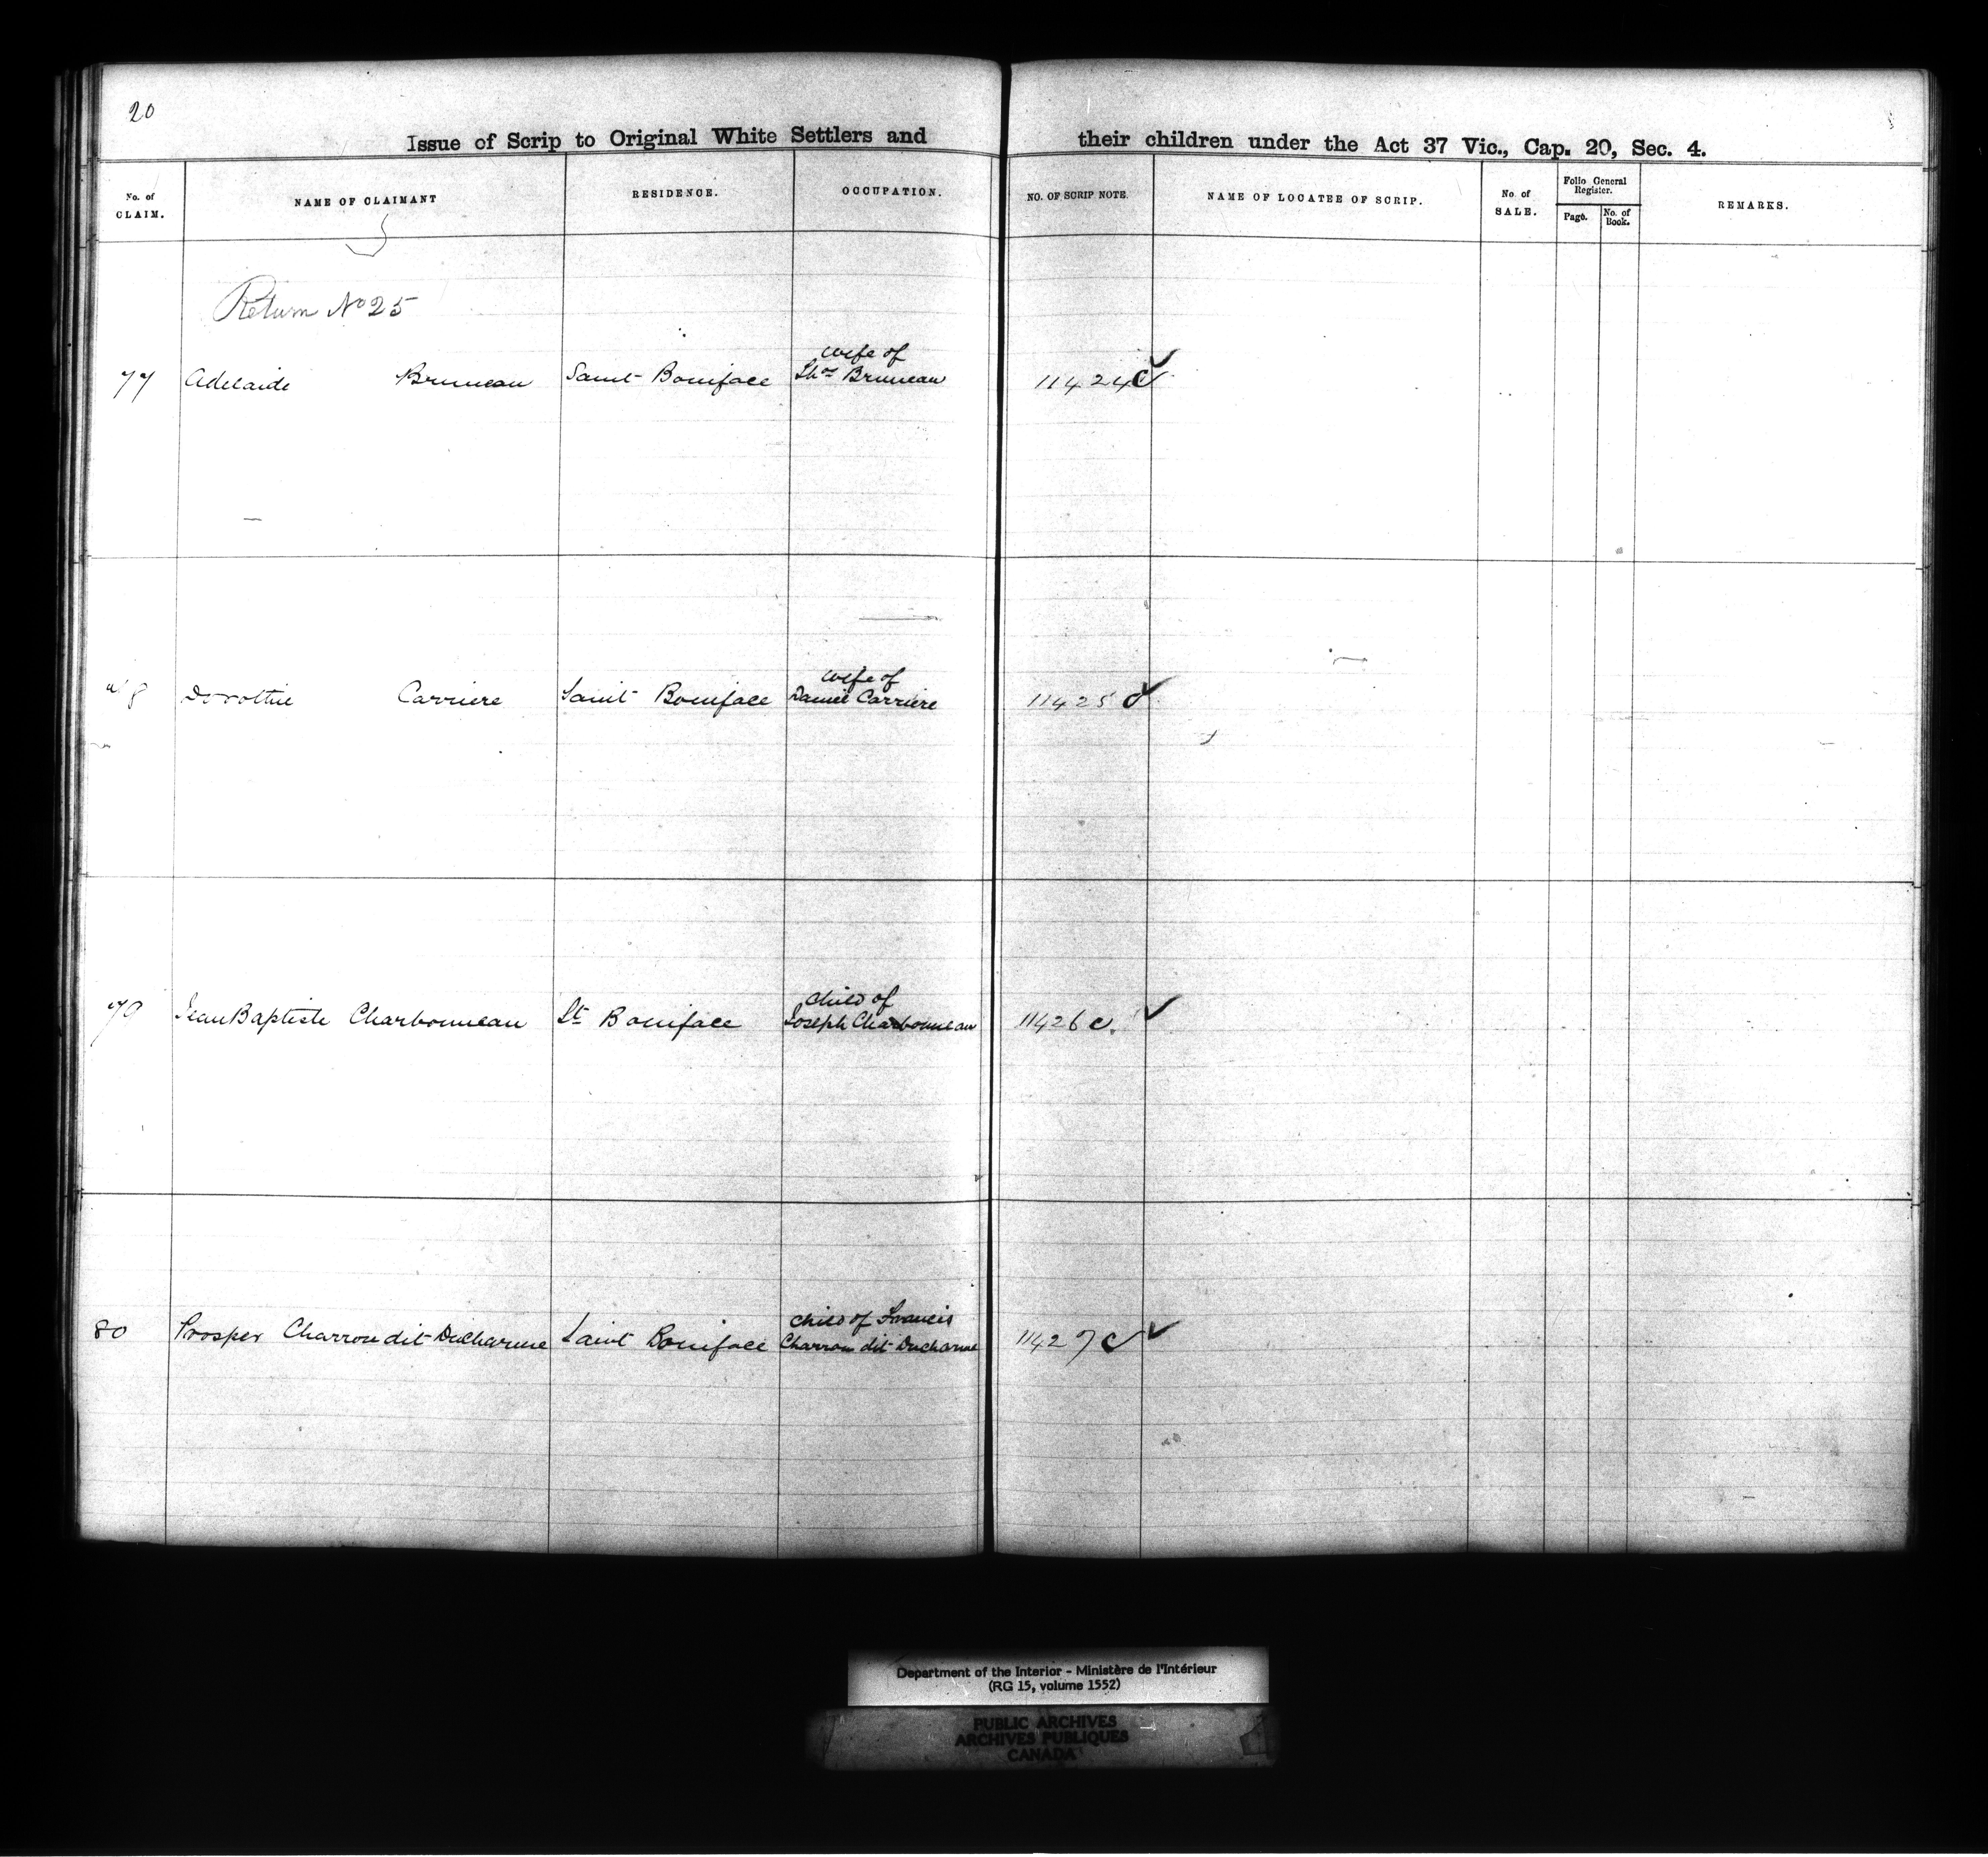 20
Issue of Scrip to Original White Settlers and their children under the Act 37 Vic., Cap. 20, Sec. 4.
No. of CLAIM. NAME OF CLAIMANT RESIDENCE. OCCUPATION. NO. OF SCRIP NOTE. NAME OF LOCATEE OF SCRIP. No. of SALE. Folio General Register. Page. No. of Book. REMARKS.
Return No 25
wife of
77 Adelaide Bruneau Saint Boniface Thos Bruneau 11424 C ✓
wife of
78 Dorothie Carriere Saint Boniface Daniel Carriere 11425 c ✓
child of
79 Jean Baptiste Charbonneau St Boniface Joseph Charbonneau 11426 c. ✓
child of Francis
80 Prosper Charron dit Ducharme Saint Boniface Charron dit Ducharme 11427 C ✓
Department of the Interior - Ministère de l'Intérieur
(RG 15, volume 1552)
PUBLIC ARCHIVES
ARCHIVES PUBLIQUES
CANADA